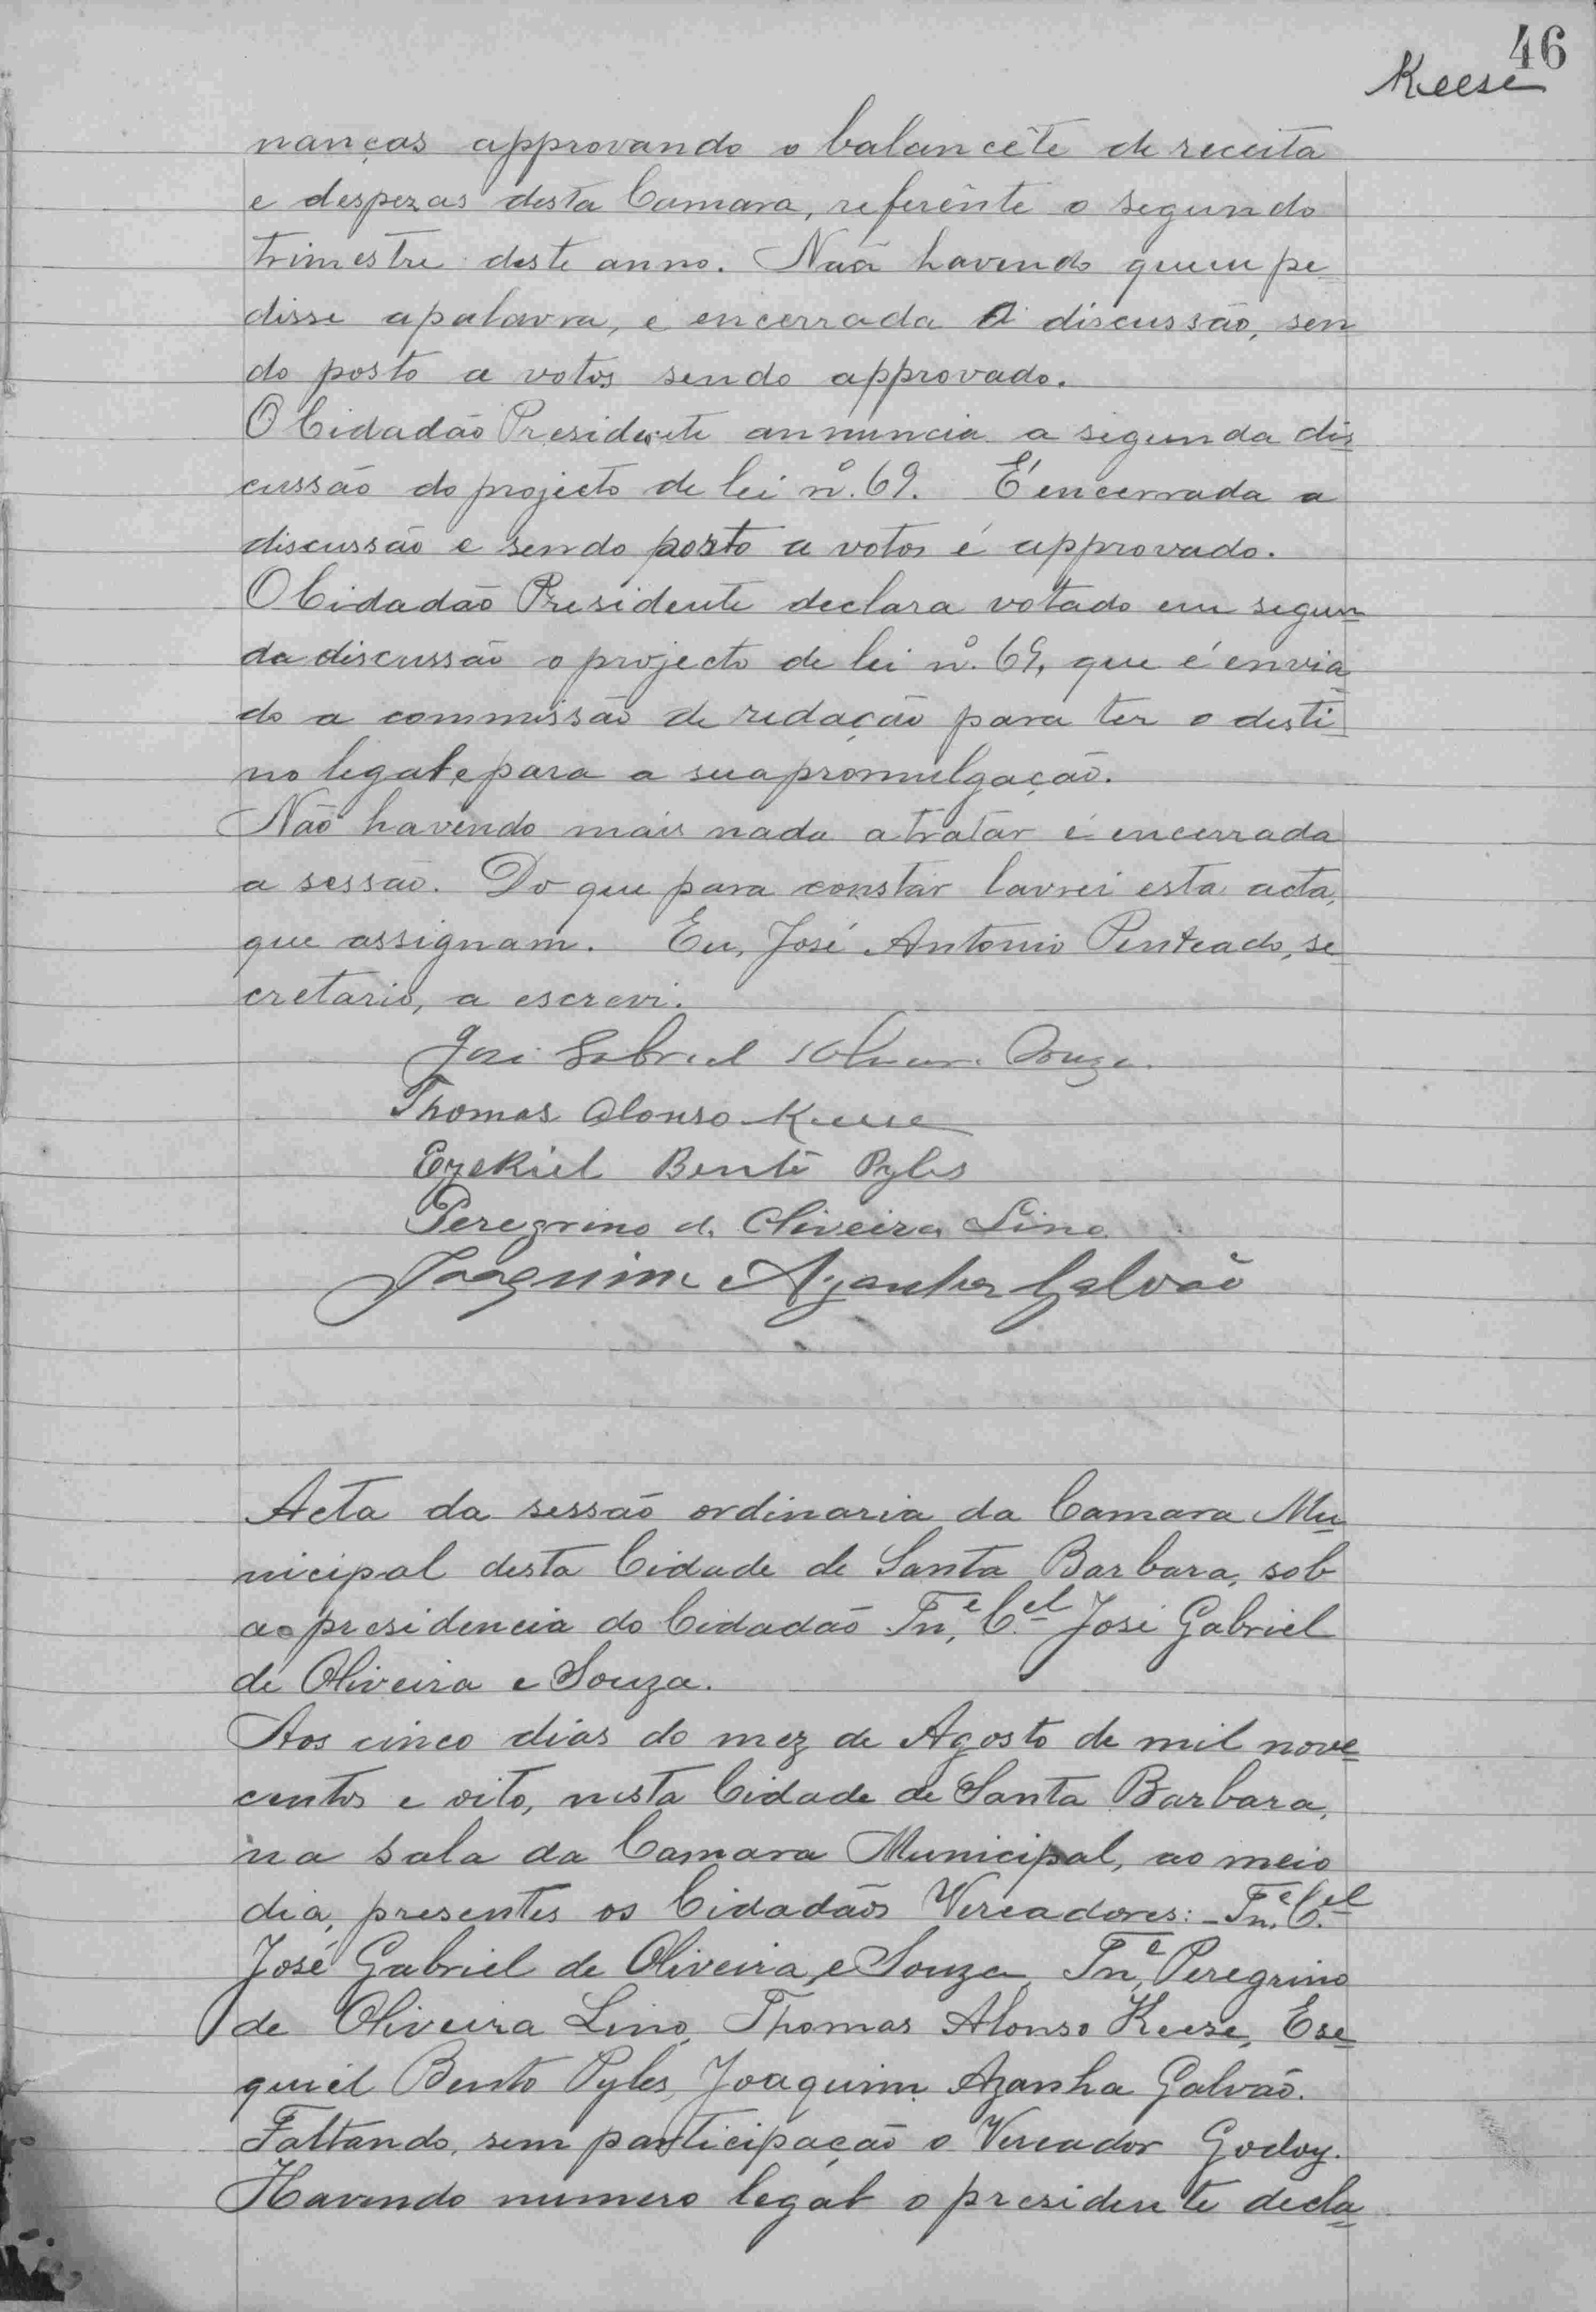 46
Keese
nanças approvando o balancête de receita
e despezas desta Camara, referênte o segundo
trimestre deste anno. Naõ havendo quem pe
disse apalavra, é encerrada A discussão, sen
do posto a votos sendo approvado.
O Cidadão Presidente annuncia a segunda dis
cussão do projecto de lei nº. 69. É encerrada a
discussão e sendo posto a votos é approvado.
O Cidadão Presidente declara votado em segun
da discussão o projecto de lei nº. 69, que é envia
do a commissão de redação para ter o desti
no legal, e para a sua promulgação.
Não havendo mais nada a tratar é encerrada
a sessão. Do que para constar lavrei esta acta,
que assignam. Eu, José Antonio Penteado, se
cretario, a escrevi.
José Gabriel Souza
Thomas Alonso Keese
Ezekiel Bento Pyles
Peregrino d. Oliveira Lino
Joaquim Azanha Galvão
Acta da sessão ordinaria da Camara Mu
nicipal desta Cidade de Santa Barbara, sob
a presidencia do Cidadão Tn.e C.el José Gabriel
de Oliveira e Souza.
Aos cinco dias do mez de Agosto de mil nove
centos e oito, nesta Cidade de Santa Barbara,
na sala da Camara Municipal, ao meio
dia, presentes os Cidadãos Vereadores: - Tn.e C.el
José Gabriel de Oliveira e Souza, Tn.e Peregrino
de Oliveira Lino, Thomas Alonso Keese, Ese
quiel Bento Pyles, Joaquim Azanha Galvão.
Faltando, sem participação o Vereador Godoy.
Havendo numero legal o presidente decla